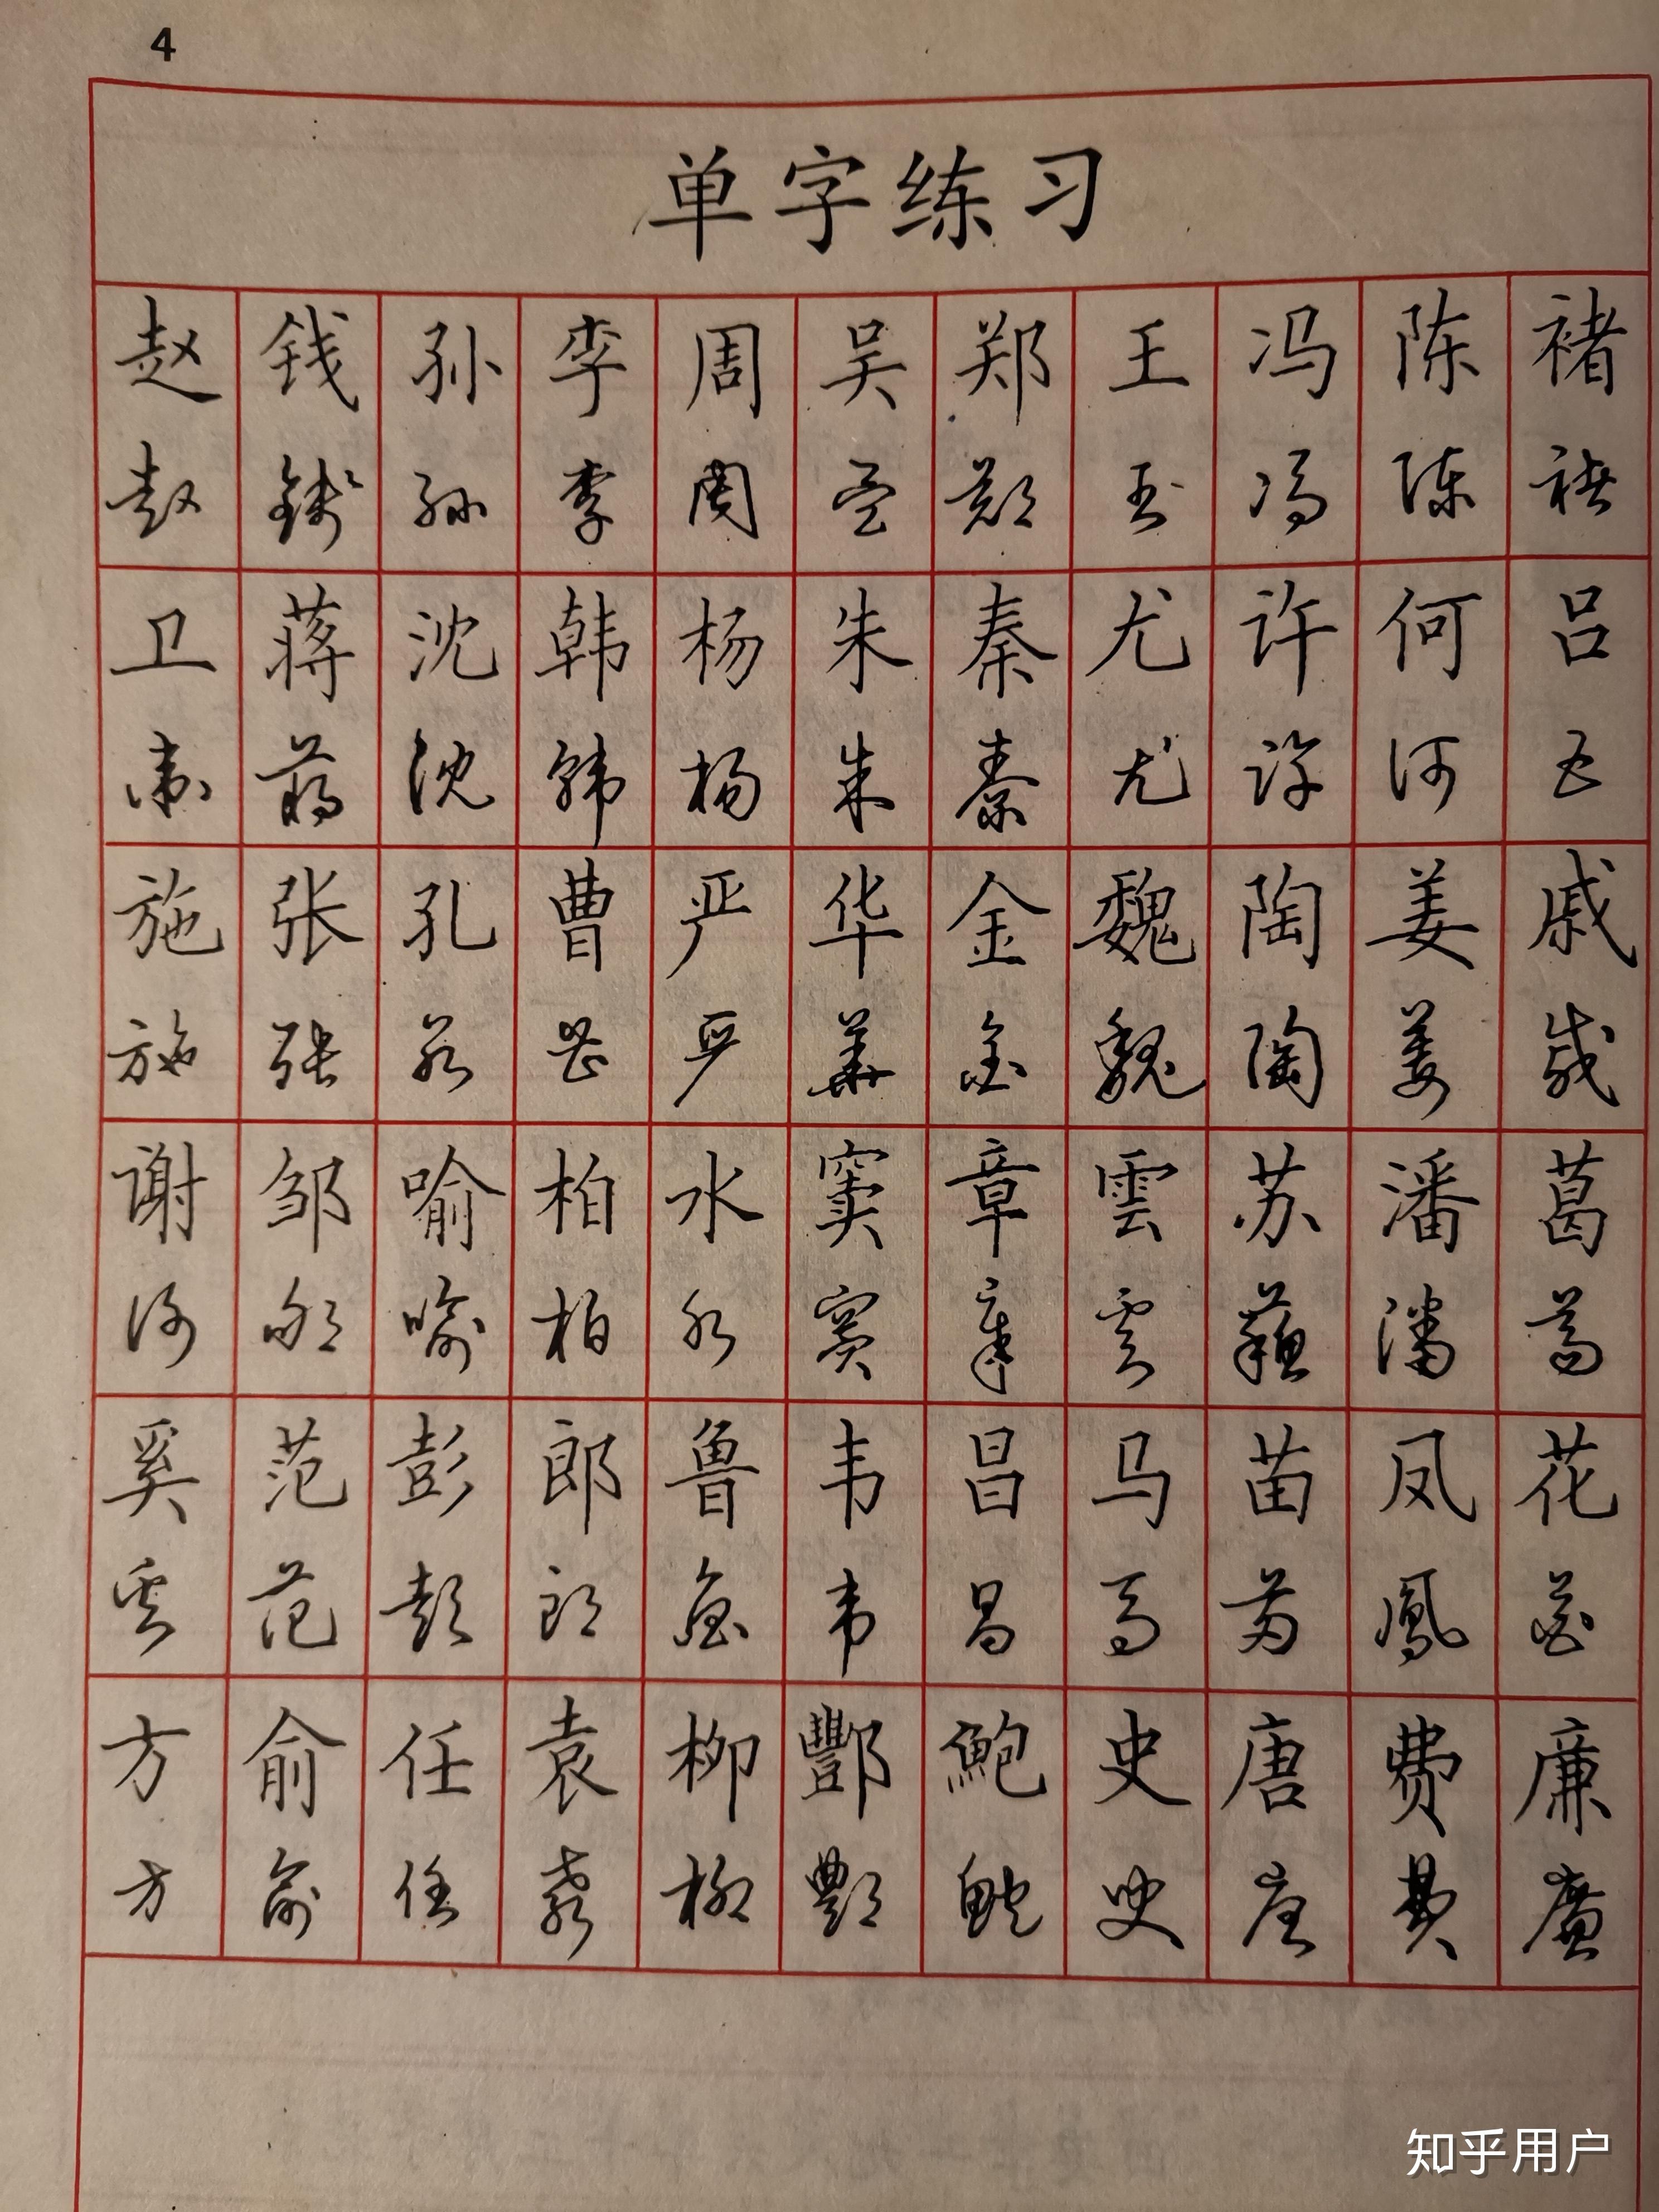 4
单字练习
赵钱孙李周吴郑王冯陈褚
赵钱孙李周吴郑王冯陈褚
卫蒋沈韩杨朱秦尤许何吕
卫蒋沈韩杨朱秦尤许何吕
施张孔曹严华金魏陶姜戚
施张孔曹严華金魏陶姜戚
谢邹喻柏水窦章雲苏潘葛
谢邹喻柏水窦章雲蘇潘葛
奚范彭郎鲁韦昌马苗凤花
奚范彭郎鲁韦昌马苗鳳花
方俞任袁柳酆鲍史唐费廉
方俞任袁柳酆鲍史唐费廉
知乎用户